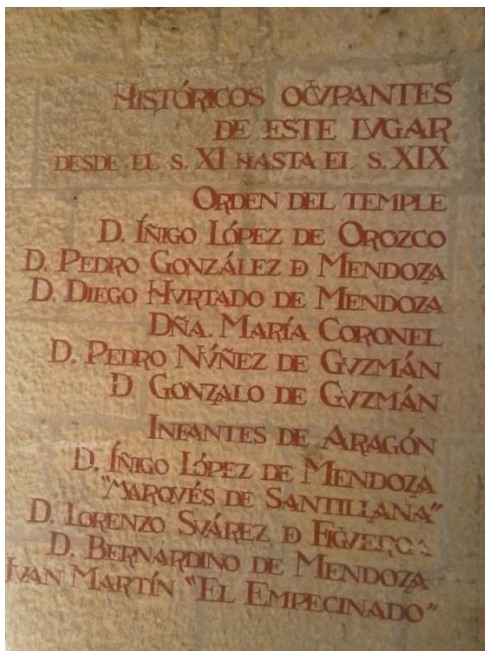 HISTÓRICOS OCVPANTES
DE ESTE LVGAR
DESDE EL S. XI HASTA EL S. XIX
ORDEN DEL TEMPLE
D. ÍÑIGO LÓPEZ DE OROZCO
D. PEDRO GONZÁLEZ D MENDOZA
D. DIEGO HVRTADO DE MENDOZA
DÑA. MARÍA CORONEL
D. PEDRO NÚÑEZ DE GVZMÁN
D GONZALO DE GVZMÁN
INFANTES DE ARAGÓN
D. ÍÑIGO LÓPEZ DE MENDOZA
"MARQVÉS DE SANTILLANA"
D. LORENZO SVÁREZ D FIGVEROA
D. BERNARDINO DE MENDOZA
JVAN MARTÍN "EL EMPECINADO"